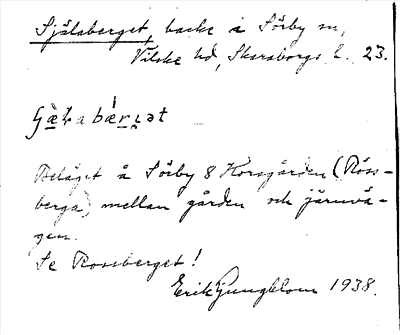 Själaberget, backe å Sörby sn,
Vilske hd, Skaraborgs l. 23.
Beläget å Sörby 8 Korsgården (Röss-
berga) mellan gården och järnvä-
gen.
Se Rossberget!
Erik Ljungblom 1938.